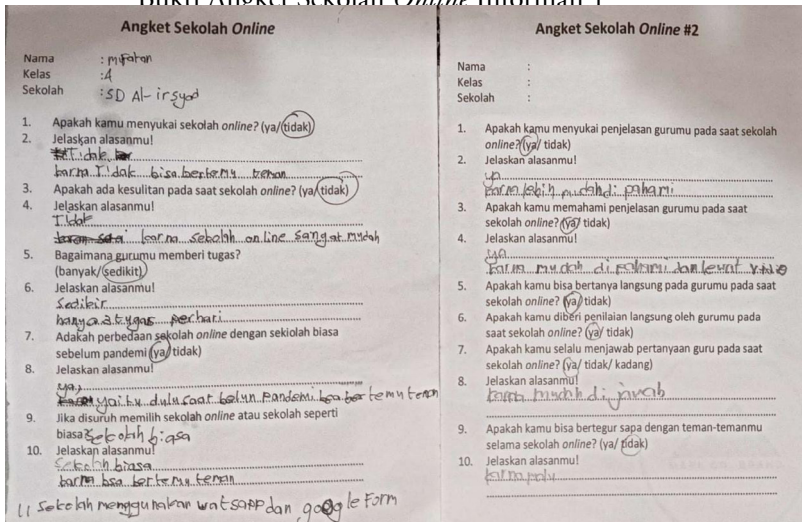 Bukti Angket Sekolah Online Informan 1
Angket Sekolah Online
Nama : Mifaton
Kelas : 4
Sekolah : SD Al-irsyad
1. Apakah kamu menyukai sekolah online? (ya/tidak)
2. Jelaskan alasanmu!
Tidak
karna Tidak bisa bertemu teman
3. Apakah ada kesulitan pada saat sekolah online? (ya/tidak)
4. Jelaskan alasanmu!
Tidak
karna sekolah online sangat mudah
5. Bagaimana gurumu memberi tugas?
(banyak/sedikit)
6. Jelaskan alasanmu!
Sedikit
hanya 2 tugas perhari
7. Adakah perbedaan sekolah online dengan sekiolah biasa
sebelum pandemi (ya/tidak)
8. Jelaskan alasanmu!
ya,
yaitu dulu saat belum pandemi bsa bertemu teman
9. Jika disuruh memilih sekolah online atau sekolah seperti
biasa? Sekolah biasa
10. Jelaskan alasanmu!
Sekolah biasa
karna bsa bertemu teman
11 Sekolah menggunakan watsapp dan google Form
Angket Sekolah Online #2
Nama :
Kelas :
Sekolah :
1. Apakah kamu menyukai penjelasan gurumu pada saat sekolah
online? (ya/ tidak)
2. Jelaskan alasanmu!
ya
karna lebih mudah di pahami
3. Apakah kamu memahami penjelasan gurumu pada saat
sekolah online? (ya/ tidak)
4. Jelaskan alasanmu!
ya
karna mudah di pahami dan lewat
5. Apakah kamu bisa bertanya langsung pada gurumu pada saat
sekolah online? (ya/ tidak)
6. Apakah kamu diberi penilaian langsung oleh gurumu pada
saat sekolah online? (ya/ tidak)
7. Apakah kamu selalu menjawab pertanyaan guru pada saat
sekolah online? (ya/ tidak/ kadang)
8. Jelaskan alasanmu!
karna mudah di jawab
9. Apakah kamu bisa bertegur sapa dengan teman-temanmu
selama sekolah online? (ya/ tidak)
10. Jelaskan alasanmu!
karna